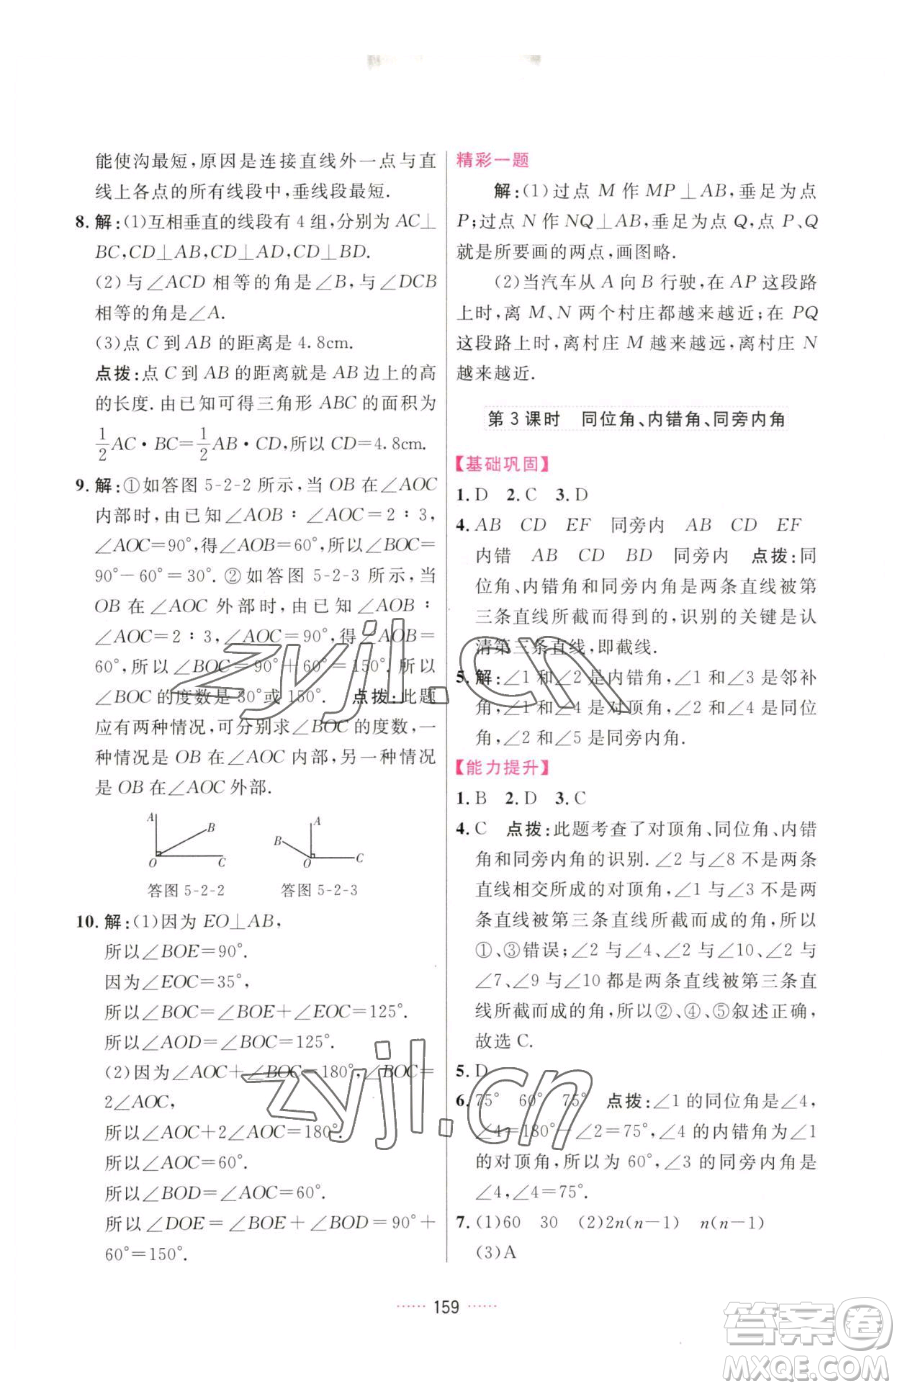 能使沟最短,原因是连接直线外一点与直
线上各点的所有线段中,垂线段最短.
8. 解:(1)互相垂直的线段有 4 组,分别为 AC⊥
BC,CD⊥AB,CD⊥AD,CD⊥BD.
(2)与∠ACD 相等的角是∠B,与∠DCB
相等的角是∠A.
(3)点 C 到 AB 的距离是 4.8cm.
点拨:点 C 到 AB 的距离就是 AB 边上的高
的长度.由已知可得三角形 ABC 的面积为
1/2 AC·BC=1/2 AB·CD,所以 CD=4.8cm.
9. 解:①如答图 5-2-2 所示,当 OB 在∠AOC
内部时,由已知∠AOB∶∠AOC=2∶3,
∠AOC=90°,得∠AOB=60°,所以∠BOC=
90°-60°=30°.②如答图 5-2-3 所示,当
OB 在∠AOC 外部时,由已知∠AOB∶
∠AOC=2∶3,∠AOC=90°,得∠AOB=
60°,所以∠BOC=90°+60°=150°.所以
∠BOC 的度数是 30°或 150°. 点拨:此题
应有两种情况,可分别求∠BOC 的度数,一
种情况是 OB 在∠AOC 内部,另一种情况
是 OB 在∠AOC 外部.
A B O C
答图 5-2-2
A B O C
答图 5-2-3
10. 解:(1)因为 EO⊥AB,
所以∠BOE=90°.
因为∠EOC=35°,
所以∠BOC=∠BOE+∠EOC=125°.
所以∠AOD=∠BOC=125°.
(2)因为∠AOC+∠BOC=180°,∠BOC=
2∠AOC,
所以∠AOC+2∠AOC=180°.
所以∠AOC=60°.
所以∠BOD=∠AOC=60°.
所以∠DOE=∠BOE+∠BOD=90°+
60°=150°.
精彩一题
解:(1)过点 M 作 MP⊥AB,垂足为点
P;过点 N 作 NQ⊥AB,垂足为点 Q,点 P、Q
就是所要画的两点,画图略.
(2)当汽车从 A 向 B 行驶,在 AP 这段路
上时,离 M、N 两个村庄都越来越近;在 PQ
这段路上时,离村庄 M 越来越远,离村庄 N
越来越近.
第 3 课时 同位角、内错角、同旁内角
【基础巩固】
1. D 2. C 3. D
4. AB CD EF 同旁内 AB CD EF
内错 AB CD BD 同旁内 点拨:同
位角、内错角和同旁内角是两条直线被第
三条直线所截而得到的,识别的关键是认
清第三条直线,即截线.
5. 解:∠1 和∠2 是内错角,∠1 和∠3 是邻补
角,∠1 和∠4 是对顶角,∠1 和∠5 是同位
角,∠2 和∠5 是同旁内角.
【能力提升】
1. B 2. D 3. C
4. C 点拨:此题考查了对顶角、同位角、内错
角和同旁内角的识别.∠2 与∠8 不是两条
直线相交所成的对顶角,∠1 与∠2 不是两
条直线被第三条直线所截而成的角,所以
①、③错误;∠2 与∠4、∠2 与∠10、∠2 与
∠7、∠9 与∠10 都是两条直线被第三条直
线所截而成的角,所以②、④、⑤叙述正确,
故选 C.
5. D
6. 75° 60° 75° 点拨:∠1 的同位角是∠4,
∠4=180°-∠2=75°,∠4 的内错角是∠1
的对顶角,所以为 60°,∠3 的同旁内角是
∠4,∠4=75°.
7. (1)60 30 (2)2n(n-1) n(n-1)
(3)A
159
zyjl.cn
zyjl.cn
答案圈
MXQE.COM